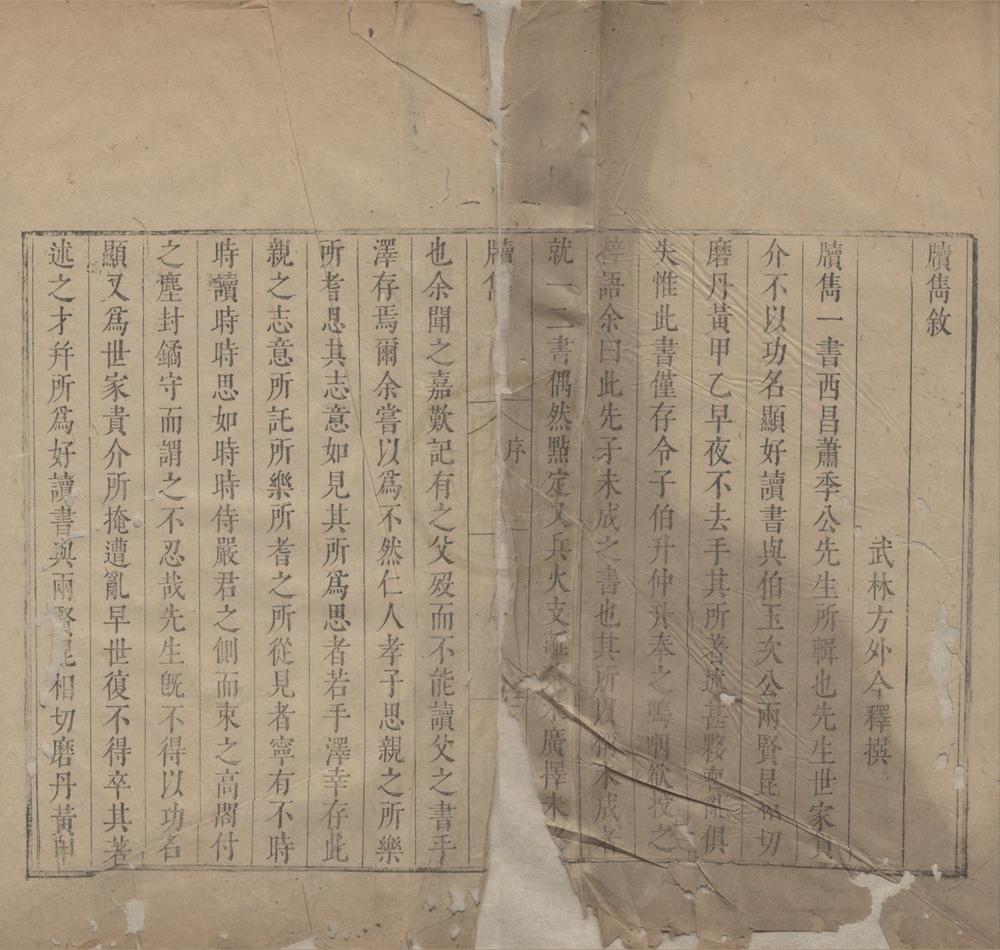 牘雋敘
武林方外今釋撰
牘雋一書西昌蕭季公先生所輯也先生世家貴
介不以功名顯好讀書與伯玉次公兩賢昆相切
磨丹黃甲乙早夜不去手其所著述甚夥喪亂俱
失惟此書僅存令子伯升仲升奉之嗚咽欲授之
梓語余曰此先子未成之書也其所以稱未成者
就一二書偶然點定又兵火支離未廣擇未
牘雋
序
也余聞之嘉歎記有之父歿而不能讀父之書手
澤存焉爾余嘗以為不然仁人孝子思親之所樂
所耆思其志意如見其所為思者若手澤幸存此
親之志意所託所樂所耆之所從見者寧有不時
時讀時時思如時時侍嚴君之側而束之高閣付
之塵封鐍守而謂之不忍哉先生旣不得以功名
顯又為世家貴介所掩遭亂早世復不得卒其著
述之才幷所為好讀書與兩賢昆相切磨丹黃甲